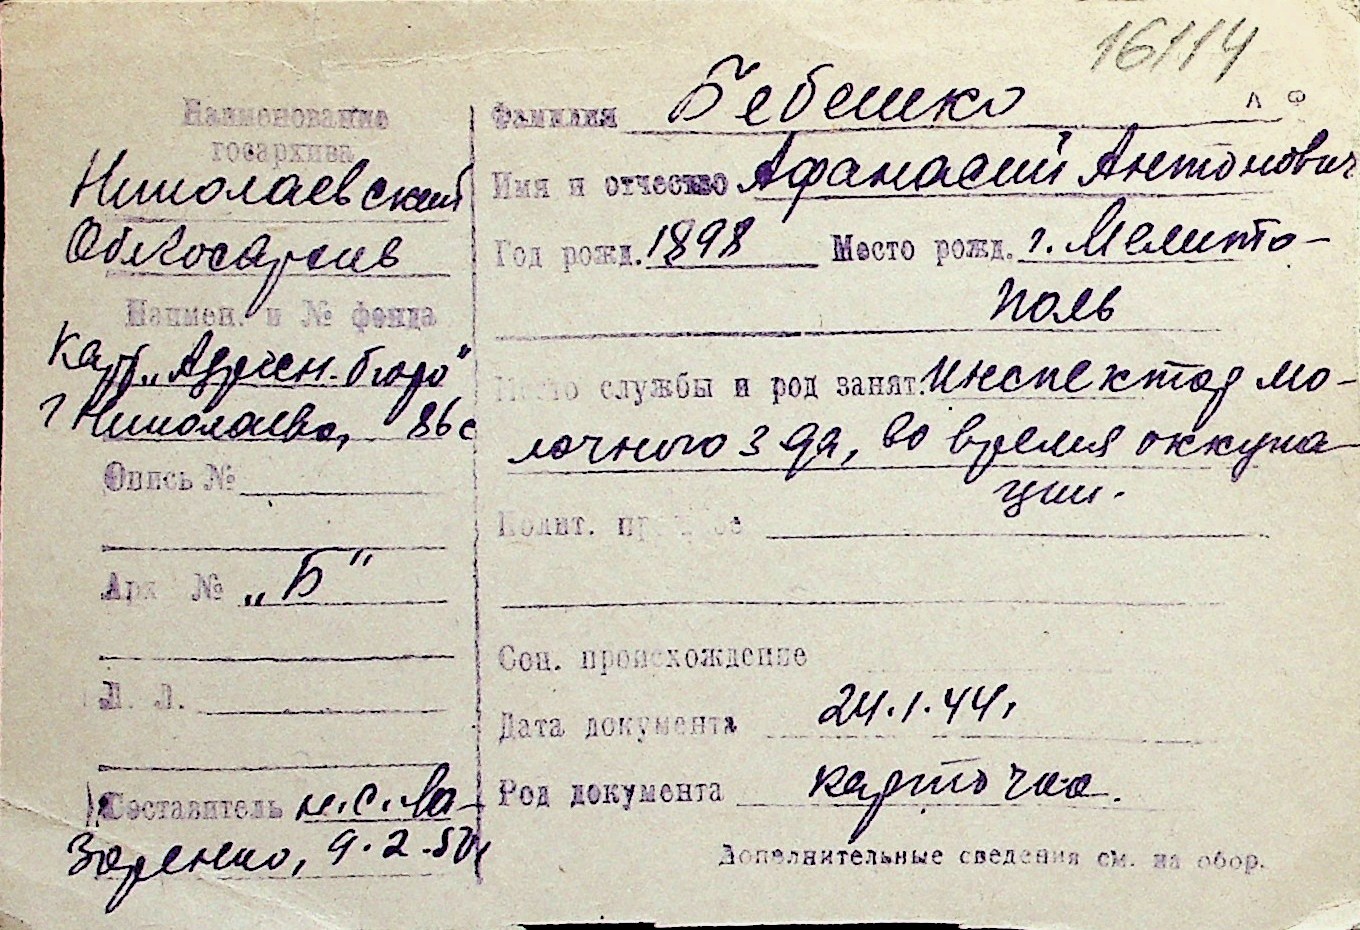 16114
Наименование
госархива
Николаевский
Облгосархив
Наимен. и № фонда
Карт. „Адресн. бюро"
г Николаева, 86с
Опись №
Арх №  „Б"
Л. Л.
Составитель н.с. Ла-
заренко, 9.2.50г
Фамилия Бебешко
Л Ф
Имя и отчество Афанасий Антонович
Год рожд. 1898 Место рожд. г. Мелито-
поль
Место службы и род занят. Инспектор мо-
лочного з да, во время оккупа
ции.
Полит.
Соц. происхождение
Дата документа 24.1.44г
Род документа карточка.
Дополнительные сведения см. на обор.